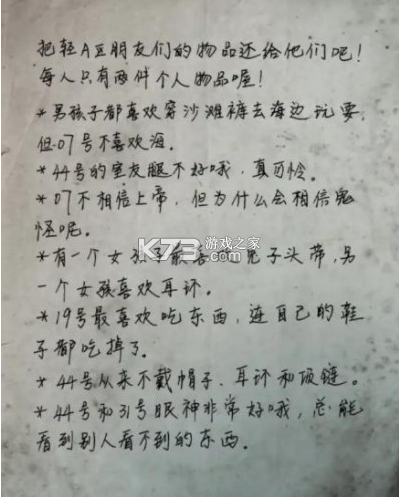 把轻A豆朋友们的物品还给他们吧！
每人只有两件个人物品喔！
*男孩子都喜欢穿沙滩裤去海边玩耍,
但07号不喜欢海。
*44号的室友腿不好哦，真可怜。
*07不相信上帝，但为什么会相信鬼
怪呢。
*有一个女孩子最喜 兔子头带，另
一个女孩喜欢耳环。
*19号最喜欢吃东西，连自己的鞋
子都吃掉了。
*44号从来不戴帽子、耳环和项链。
*44号和31号眼神非常好哦，总能
看到别人看不到的东西。
K73 游戏之家
.com